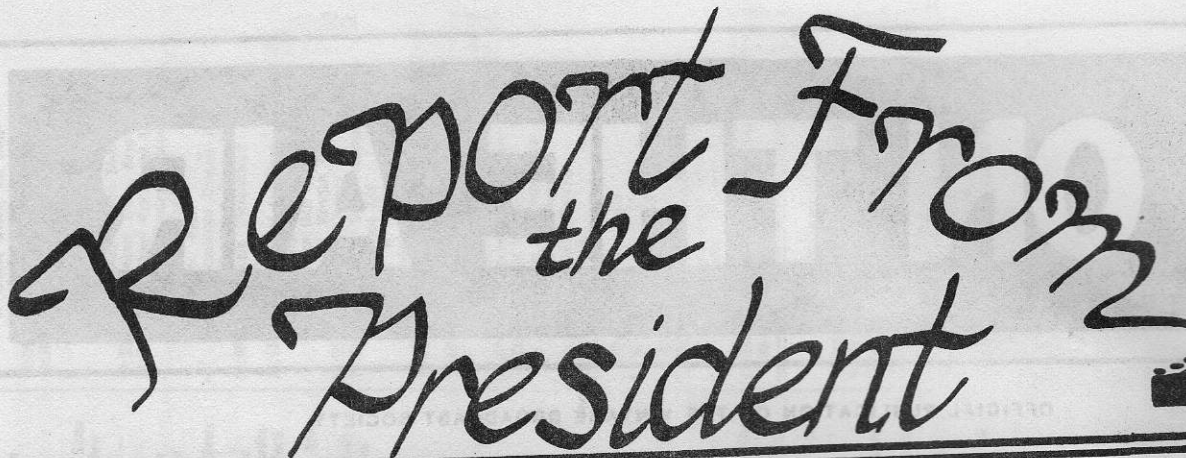 Report From
the
President